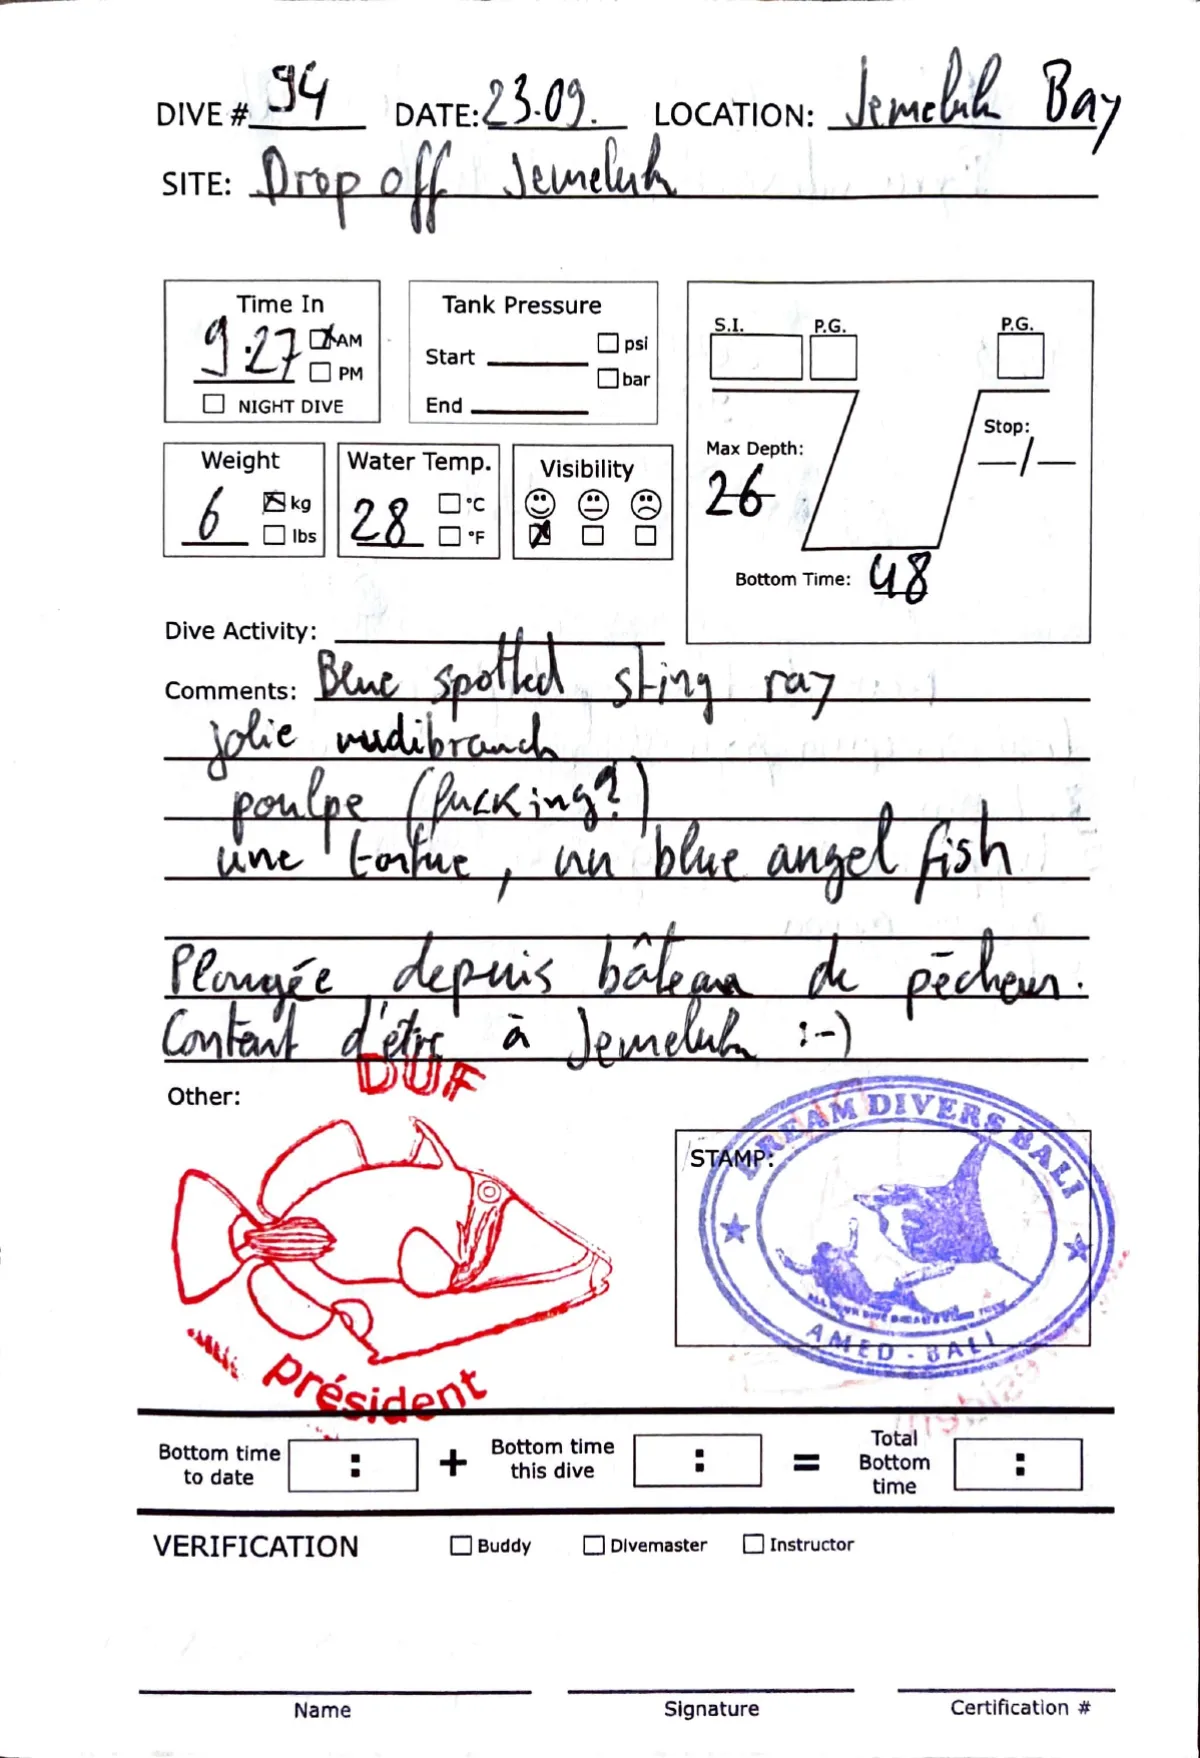 DIVE # 94 DATE: 23.09. LOCATION: Jemeluk Bay
SITE: Drop off Jemeluk
Time In
9.27 AM
PM
NIGHT DIVE
Tank Pressure
Start psi
bar
End
S.I. P.G. P.G.
Stop:
Max Depth:
26
Bottom Time: 48
Weight
6 kg
lbs
Water Temp.
28 °C
°F
Visibility
Dive Activity:
Comments: Blue spotted sting ray
jolie nudibranch
poulpe (fucking?)
une tortue, un blue angel fish
Plongée depuis bâteau de pêcheur.
Content d'être à Jemeluk :-)
Other:
DUF
président
STAMP:
DREAM DIVERS BALI
AMED - BALI
Bottom time
to date : + Bottom time
this dive : = Total
Bottom
time :
VERIFICATION Buddy Divemaster Instructor
Name Signature Certification #